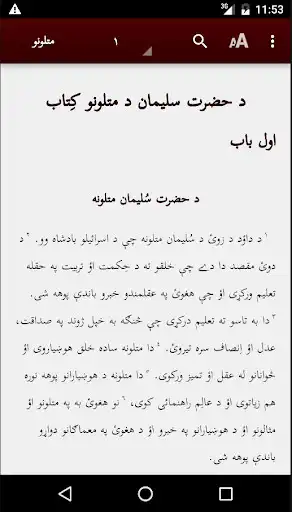 11:53
3G
متلونو
١
AA
د حضرت سليمان د متلونو کِتاب
اول باب
د حضرت سُليمان متلونه
١ د داؤد د زوئ د سُليمان متلونه چې د اسرائيلو بادشاه وو. ٢ د
دوئ مقصد دا دے چې خلقو ته د حِکمت اؤ تربيت په حقله
تعليم ورکړى اؤ چې هغوئ په عقلمندو خبرو باندې پوهه شى.
٣ دا به تاسو ته تعليم درکړى چې څنګه به خپل ژوند په صداقت،
عدل اؤ اِنصاف سره تيروئ. ٤ دا متلونه ساده خلق هوښياروى اؤ
ځوانانو له عقل اؤ تميز ورکوى. ٥ دا متلونه د هوښيارانو پوهه نوره
هم زياتوى اؤ د عالِم راهنمائى کوى، ٦ نو هغوئ به په متلونو اؤ
مثالونو اؤ د هوښيارانو په خبرو اؤ د هغوئ په معماګانو دواړو
باندې پوهه شى.